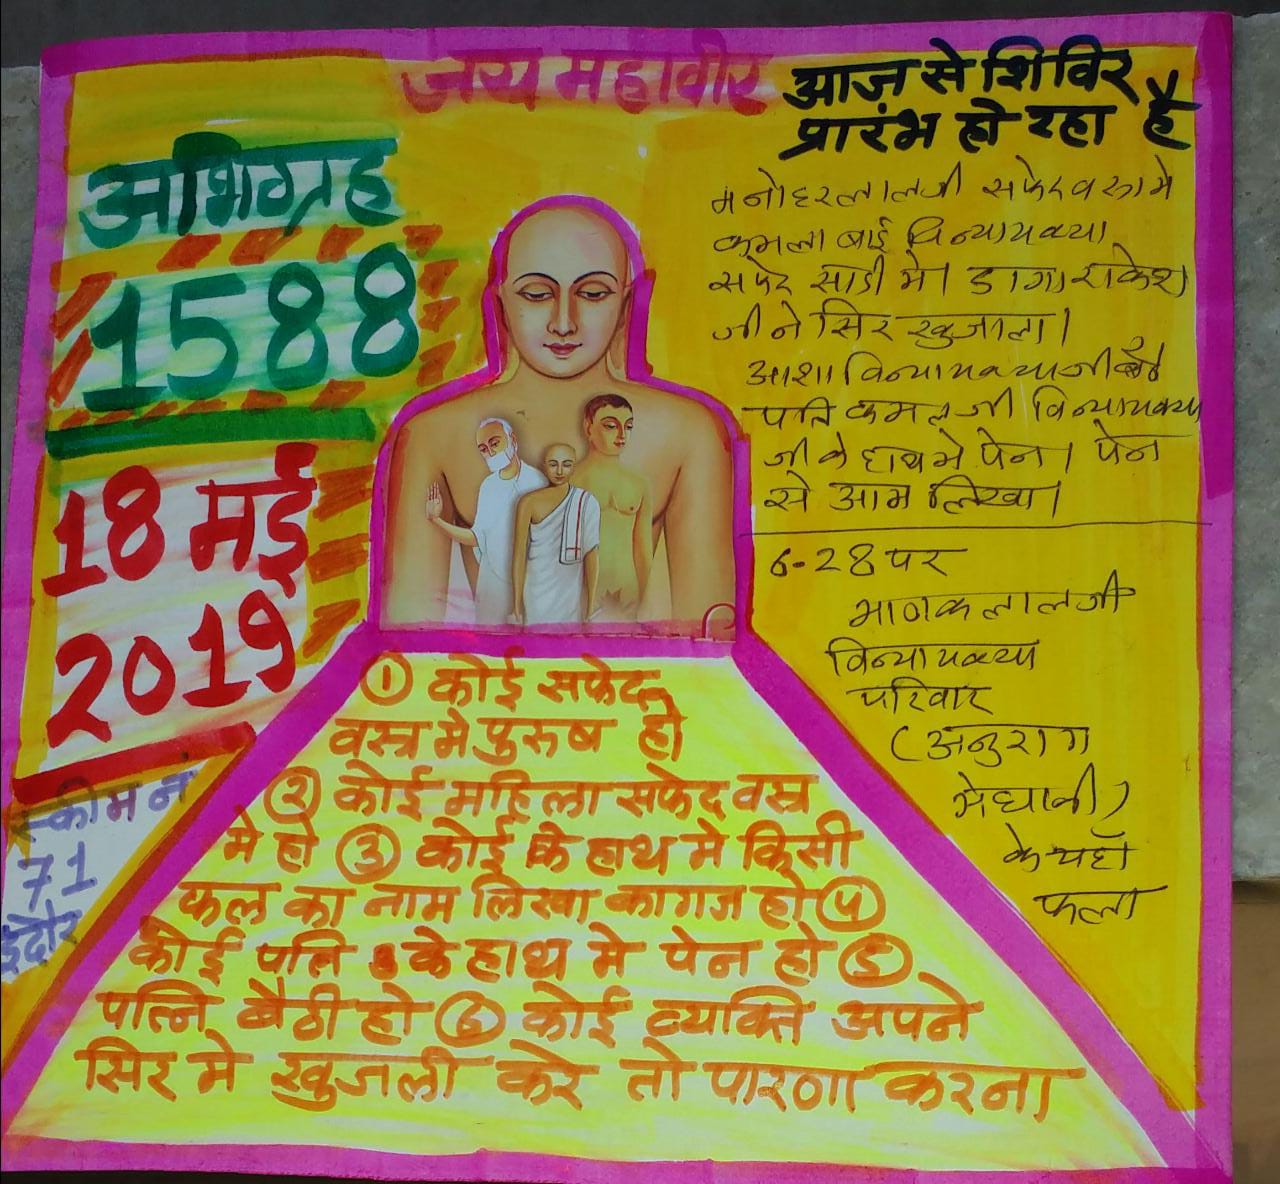 जय महावीर
आज से शिविर
प्रारंभ हो रहा है
अभिग्रह
1588
18 मई
2019
स्कीम नं
71
इंदौर
मनोहरलालजी सफेद वस्त्र मे
कमला बाई विन्यायक्या
सफेद साडी मे। डागा राकेश
जी ने सिर खुजाला।
आशा विन्यायक्या जी बैठी
पति कमल जी विन्यायक्या
जी के हाथ मे पेन। पेन
से आम लिखा।
6-28 पर
माणकलालजी
विन्यायक्या
परिवार
(अनुराग
मेघानी)
के यहाँ
फला
① कोई सफेद
वस्त्र मे पुरुष हो
② कोई महिला सफेद वस्त्र
मे हो ③ कोई के हाथ मे किसी
फल का नाम लिखा कागज हो ④
कोई पति के हाथ मे पेन हो ⑤
पत्नि बैठी हो ⑥ कोई व्यक्ति अपने
सिर मे खुजली करे तो पारणा करना